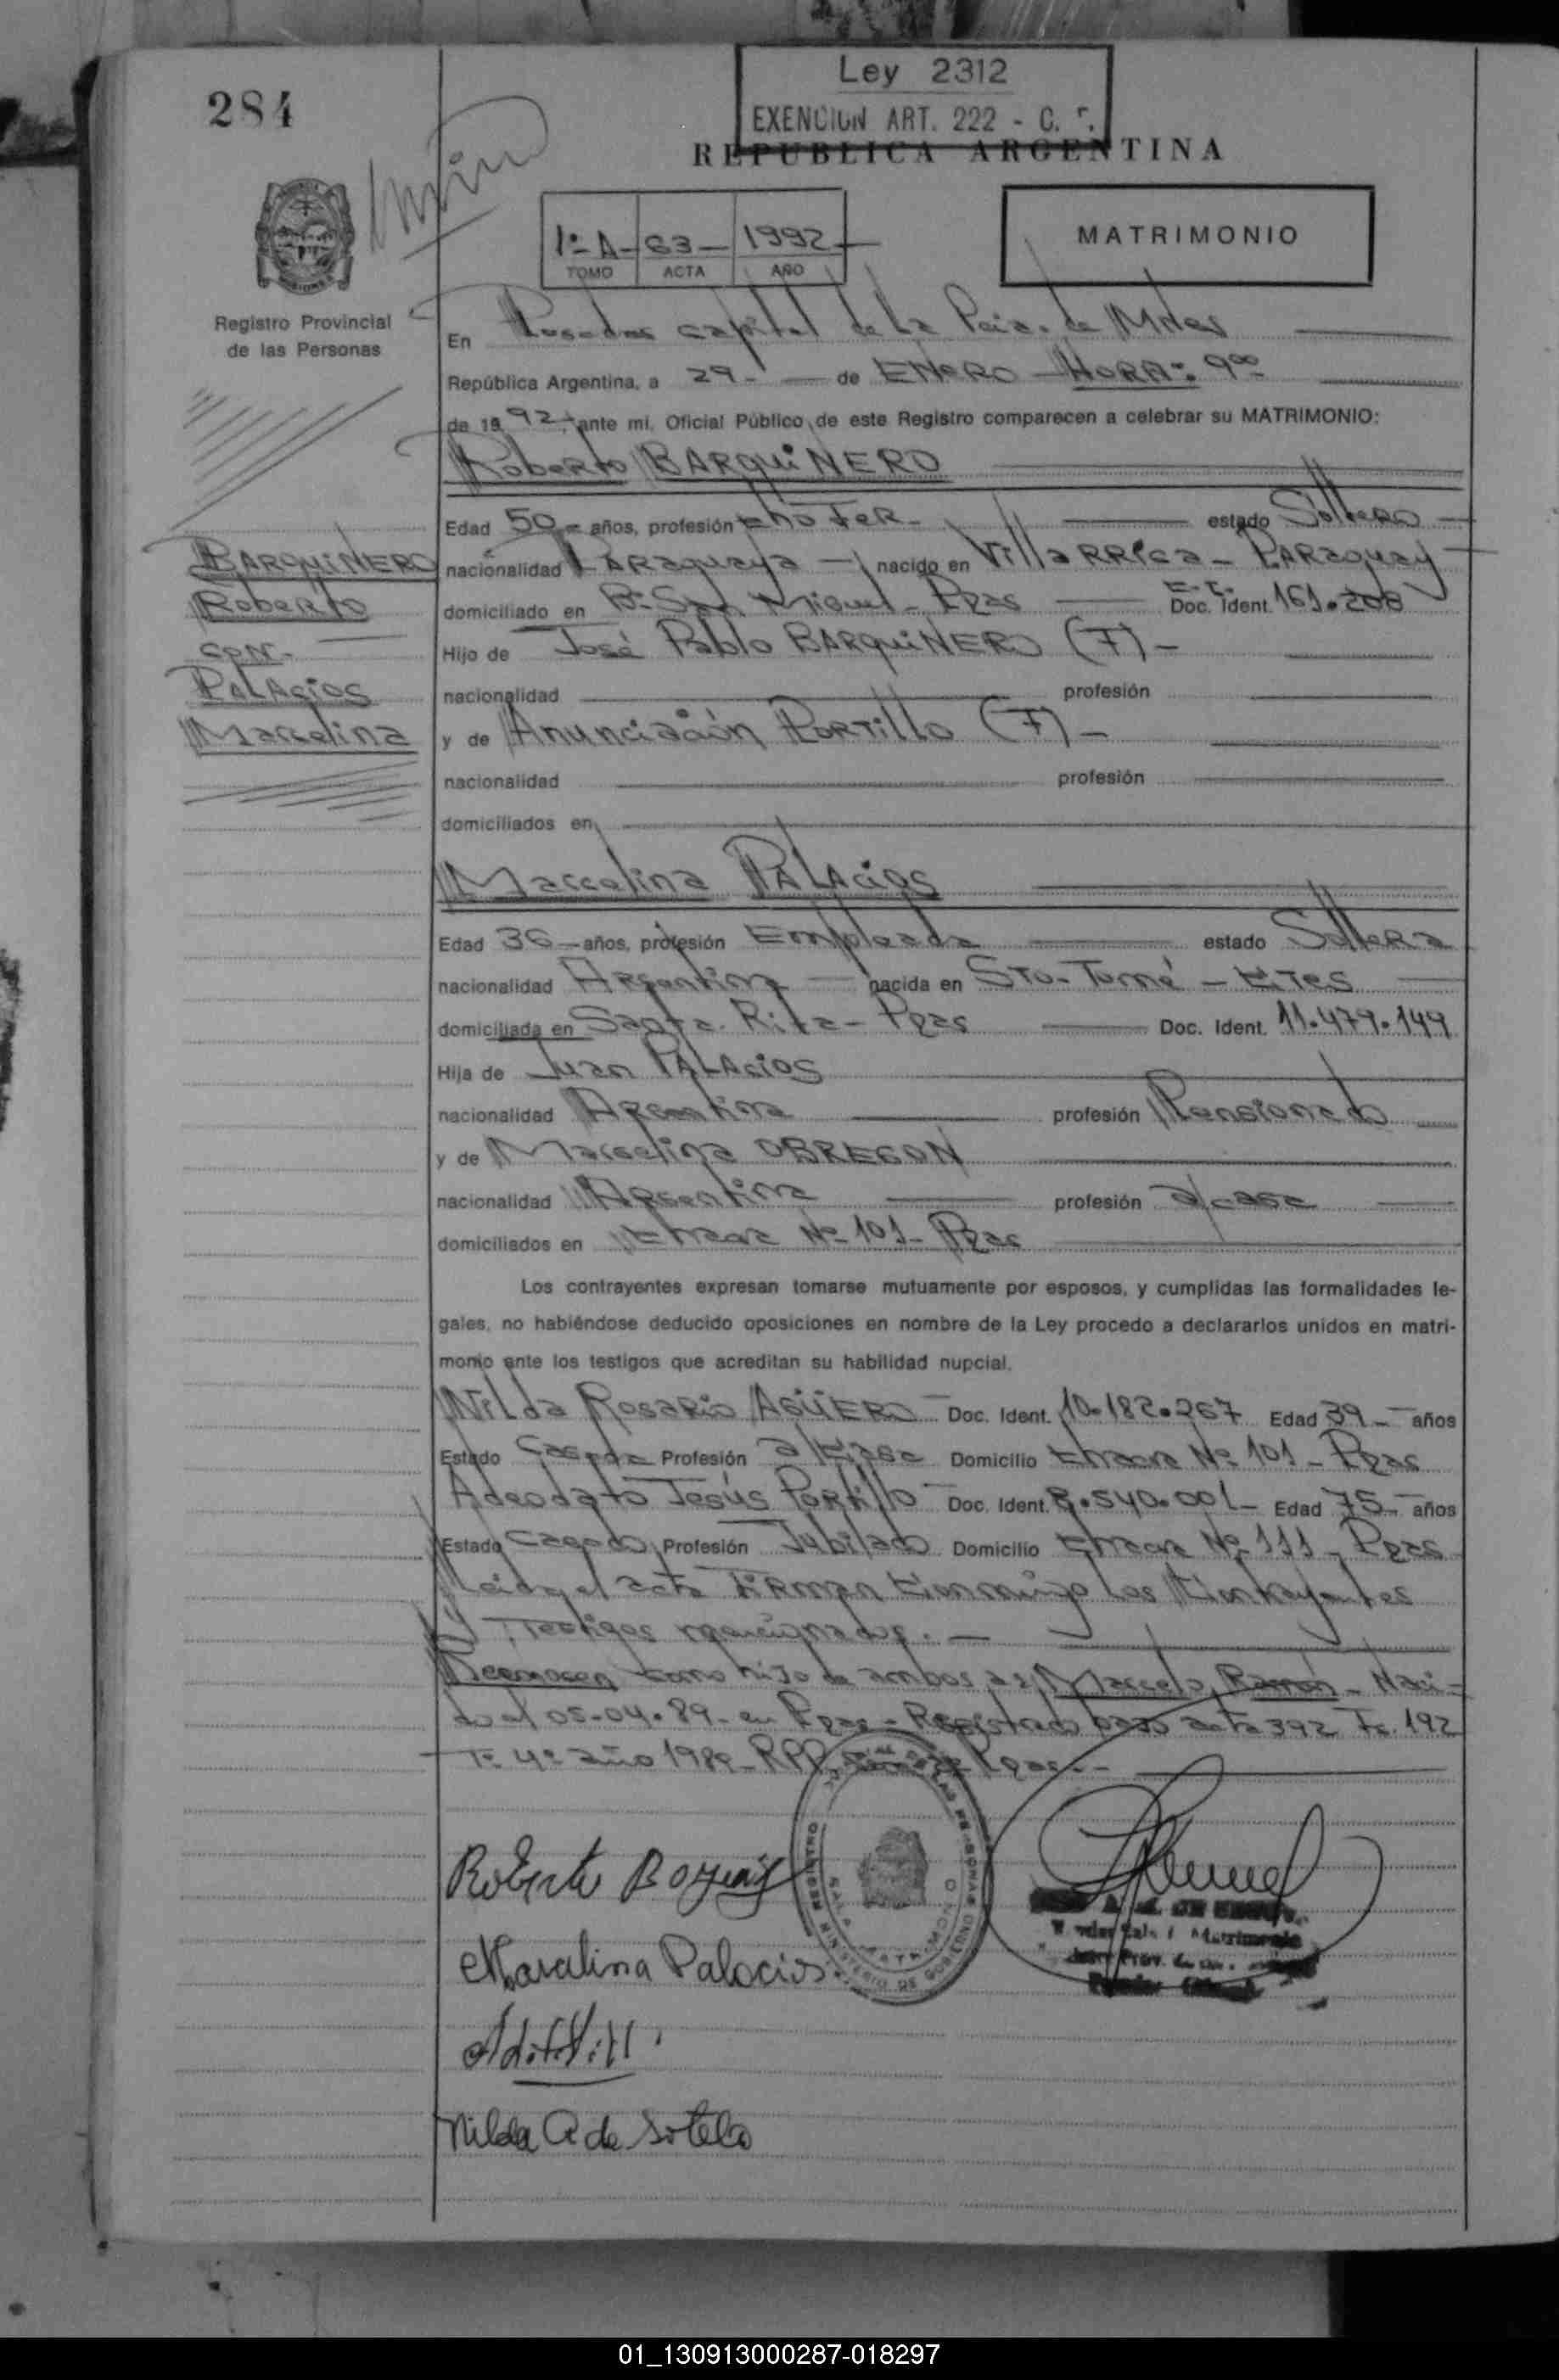 Ley 2312
EXENCION ART. 222 - C.
284
REPUBLICA ARGENTINA
1º A- 63- 1992-
TOMO ACTA AÑO
MATRIMONIO
Registro Provincial
de las Personas
En Posadas capital de la Pcia. de Mnes
República Argentina, a 29.- de ENERO - HORA: 9⁰⁰
de 19 92.- ante mi, Oficial Público de este Registro comparecen a celebrar su MATRIMONIO:
Roberto BARQUINERO
Edad 50- años, profesión Chofer- estado Soltero-
BARQUINERO
Roberto
con-
PALACIOS
Marcelina
nacionalidad Paraguaya - nacido en Villarrica - Paraguay
domiciliado en Bº San Miguel - Pdas C.I. Doc. Ident. 161.208
Hijo de José Pablo BARQUINERO (F)-
nacionalidad profesión
y de Anunciación Portillo (F)-
nacionalidad profesión
domiciliados en
Marcelina PALACIOS
Edad 36- años, profesión Empleada estado Soltera
nacionalidad Argentina - nacida en Sto. Tomé - Ctes
domiciliada en Santa Rita - Pdas Doc. Ident. 11.479.149
Hija de Juan PALACIOS
nacionalidad Argentina profesión Pensionado
y de Marcelina OBREGON
nacionalidad Argentina profesión a/casa
domiciliados en Nº 101- Pdas
Los contrayentes expresan tomarse mutuamente por esposos, y cumplidas las formalidades le-
gales, no habiéndose deducido oposiciones en nombre de la Ley procedo a declararlos unidos en matri-
monio ante los testigos que acreditan su habilidad nupcial.
Nilda Rosario AGÜERO Doc. Ident. 10.182.267 Edad 39- años
Estado Casada Profesión a/casa Domicilio Nº 101- Pdas
Adeodato Jesús Portillo Doc. Ident. 8.540.001- Edad 75- años
Estado Casado Profesión Jubilado Domicilio Nº 111- Pdas
Leida el acta Firman Conmigo los Contrayentes
y Testigos mencionados.-
Reconocen como hijo de ambos a: Marcelo Ramón - Naci-
do el 05-04-89- en Pdas - Registrado bajo acta 392 Fº 192
Tº 4º año 1989- RPP Pdas.-
Roberto
Marcelina Palacios
Nilda A de Sotelo
SALA MATRIMONIO
MINISTERIO DE GOBIERNO
01_130913000287-018297